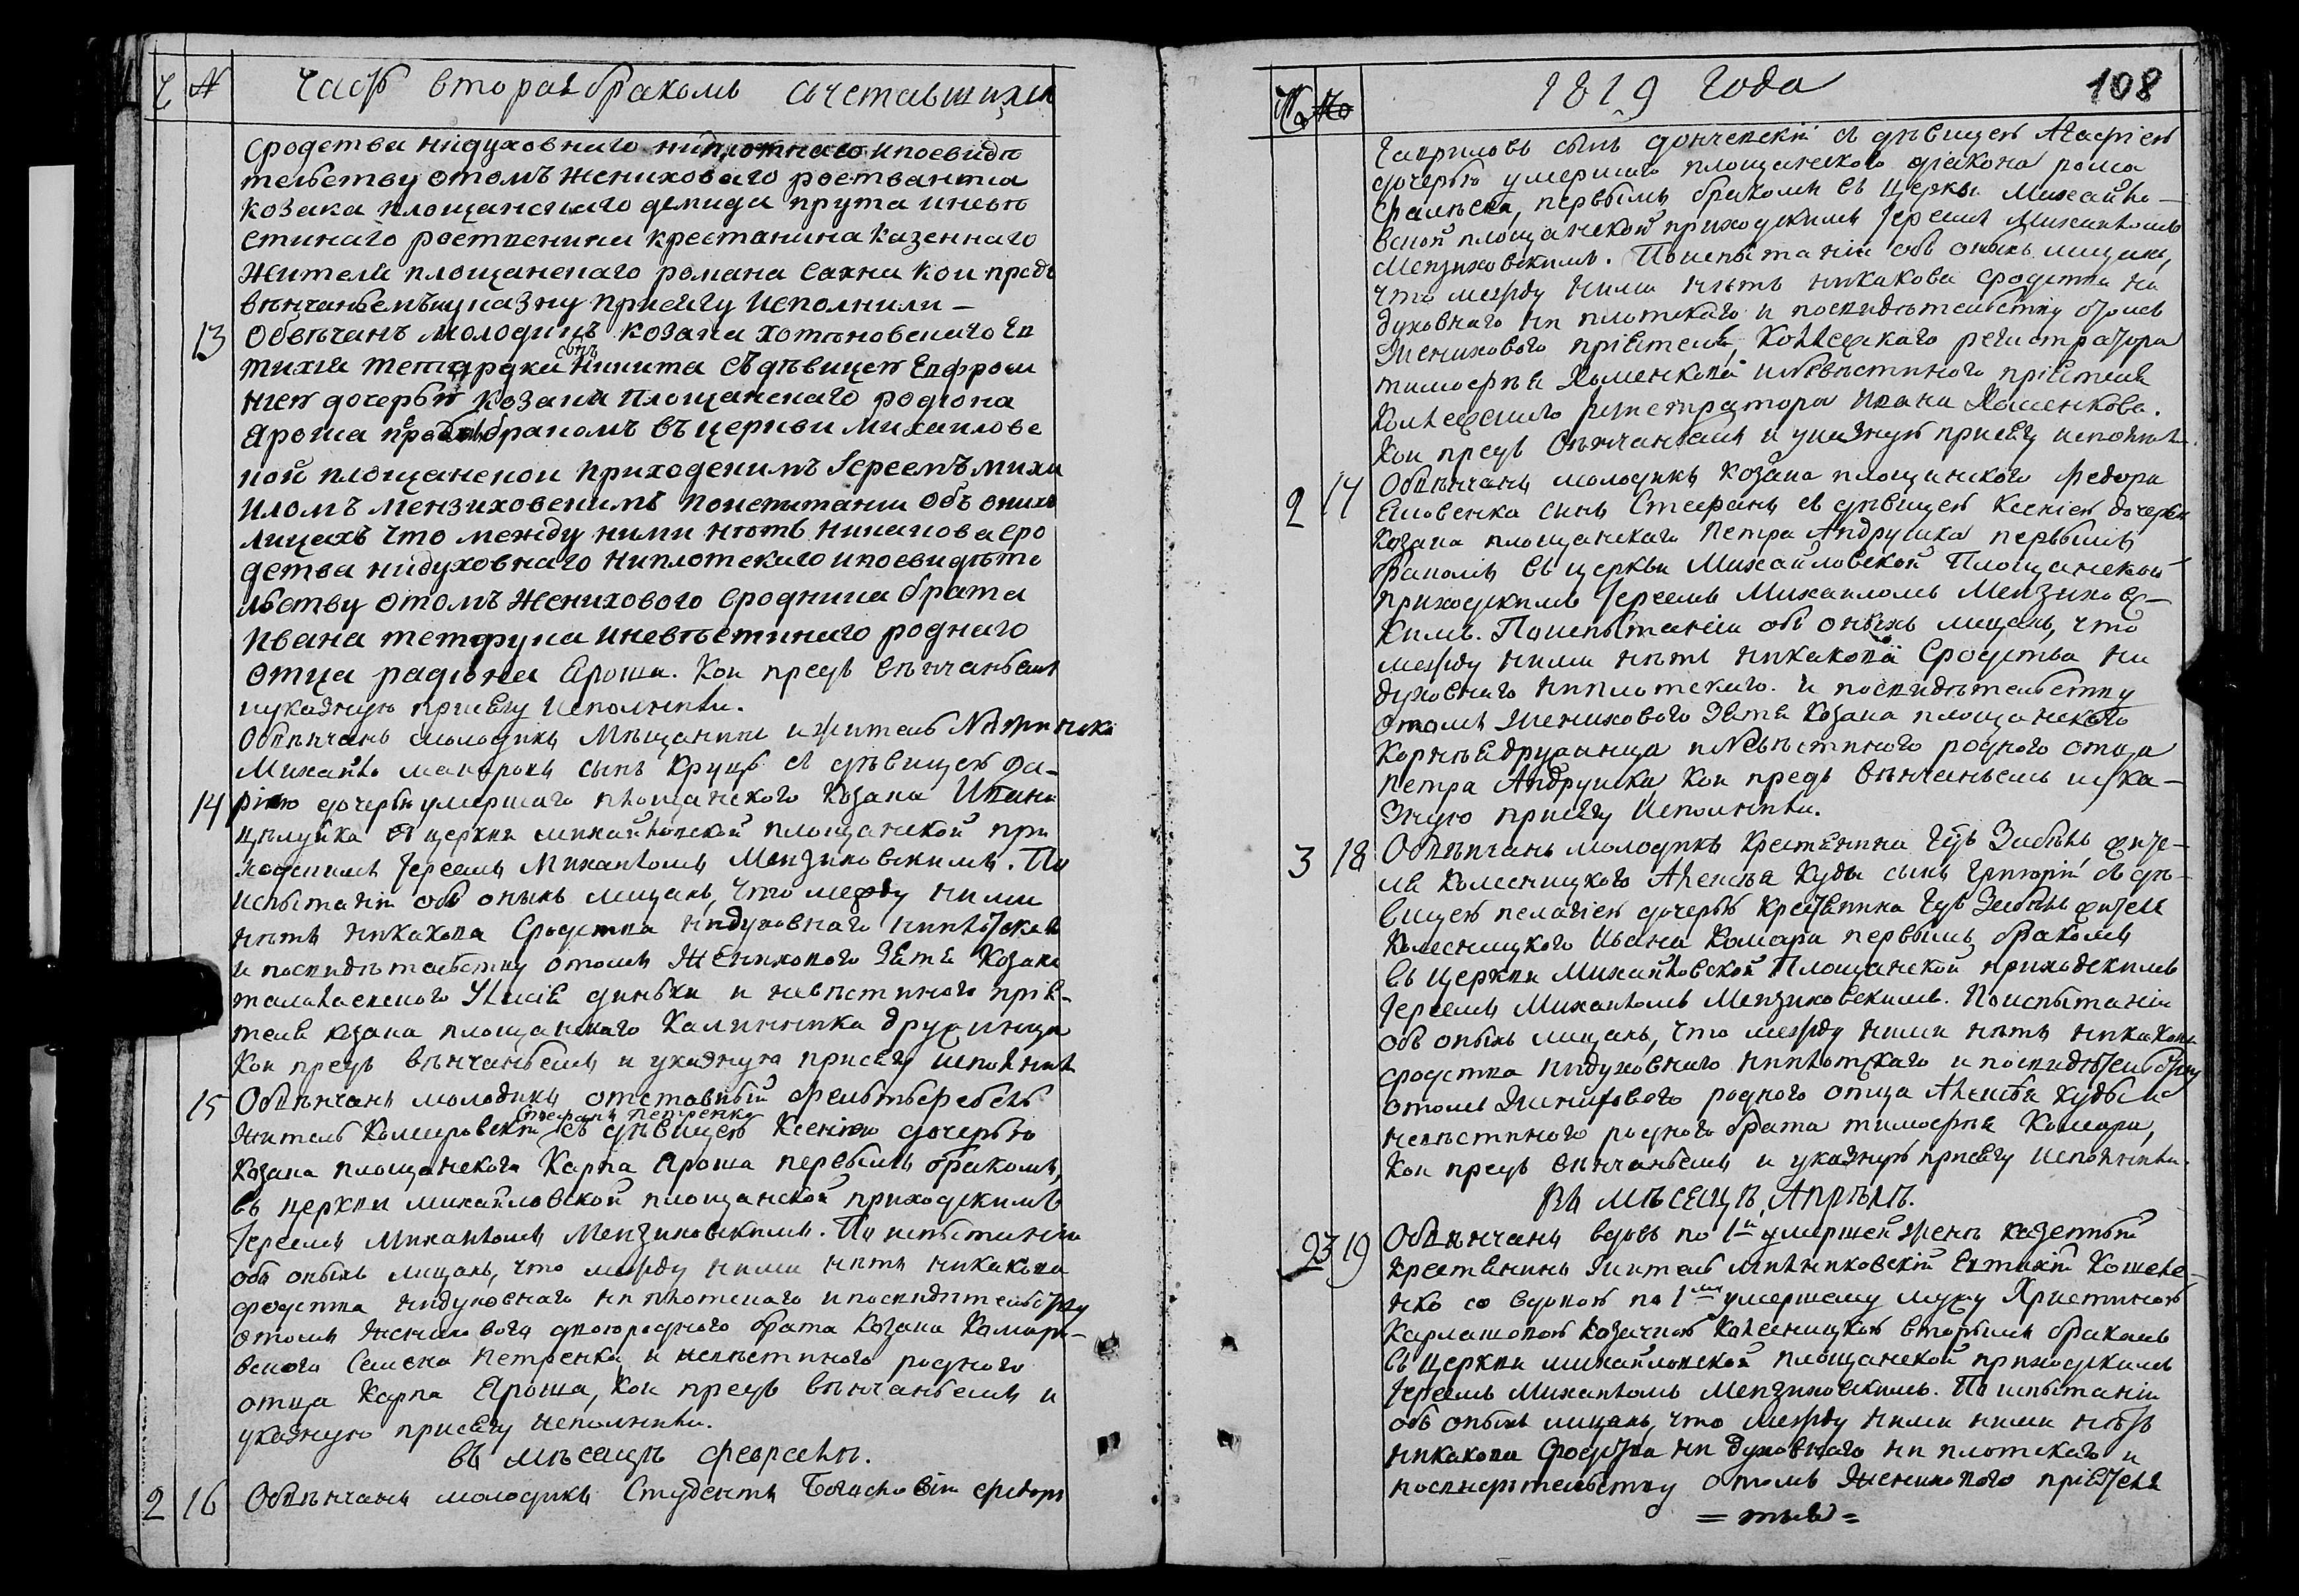 Ч № Часть вторая бракомъ сочетавшихся
сродства нидуховнаго ниплотнаго ипосвидѣ
тельству отомъ жениховаго
козака площанскаго демида прута иневѣ
стинаго крестянина казеннаго
жителя площанскаго романа сахна кои предъ
вѣнчаньемъ указну присягу исполнили –
13 Обвѣчанъ молодикъ козака хотяновскаго Ев
тихія сынъ Никита съ дѣвицею Евфроси
ниею дочерью козака Площанскаго родіона
Яроша бракомъ въ церкви Михаиловс
кой площанской приходскимъ Іереемъ михи
иломъ мензиховскимъ поиспытаніи объ онихъ
лицахъ что между ними нѣтъ никакова сро
дства нидуховнаго ниплотскаго ипосвидѣте
льству отомъ Женихового сродника брата
Ивана иневѣстинаго роднаго
отца радіона Яроша. Кои предъ вѣнчаньемъ
иуказную присягу исполнили.
Обвѣнчанъ молодикъ Мѣщанинъ ижитель
Михайло сынъ Круцъ съ дѣвицею да-
14 ріею дочерью умершаго площанского козака Ивана
Цѣлуйка въ церкви михайловской площанской при
ходскимъ Іереемъ Михаиломъ Мензиховскимъ. По
испытаніи объ оныхъ лицахъ, что между ними
нѣтъ никакова сродства нидуховнаго ниплотскаго
и посвидѣтельству отомъ Женихового Зятя Козака
и невѣстиного пріе-
теля козака площанскаго Калинника дружинца
Кои предъ вѣнчаньемъ и указную присягу исполнили
15 Обвѣнчанъ молодикъ отставный фельтьфебель
Стефанъ Петренко
Житель съ дѣвицею Ксеніею дочерью
Козака площанскога Карпа Яроша первымъ бракомъ,
въ церкви михайловской площанской приходскимъ
Іереемъ Михаиломъ Мензиховскимъ. По испытаніи
объ оныхъ лицахъ, что между ними нѣтъ никакова
сродства нидуховнаго ни плотскаго ипосвидѣтельству
отомъ Женихового двоюродного брата Козака Камаро-
вского Семена Петренка, и невѣстиного родного
отца Карпа Яроша, Кои предъ вѣнчаньемъ и
указную присягу исполнили.
въ мѣсецѣ февралѣ.
2 16 Обвѣнчанъ молодикъ Студентъ Богословіи Федоръ
1819 года 108
Гавриловъ сынъ дончевскій съ дѣвицею Агафіею
дочерью умершаго площанского діакона рома
первымъ бракомъ въ Церкви Михайло-
вской площанской приходскимъ Іереемъ Михаиломъ
Мензиховскимъ. Поиспытаніи объ оныхъ лицахъ,
что между ними нѣтъ никакова сродства ни
духовнаго ни плотскаго и посвидѣтельству отомъ
Женихового пріятеля, Коллежскаго регистратора
тимофея Хоменкова иНевѣстиного пріятеля
Коллежского регистратора Ивана Хоменкова.
Кои предъ вѣнчаньемъ и указную присягу исполнили.
2 17 Обвѣнчанъ молодикъ Козака площанского Федора
Еловенка синъ Стефанъ съ дѣвицею Ксеніею дочерью
Козака площанскаго Петра Андрушка первымъ
бракомъ въ церкви Михайловской Площанской
приходскимъ Іереемъ Михаиломъ Мензиховс-
кимъ. Поиспытаніи объ оныхъ лицахъ, что
между ними нѣтъ никакова Сродства ни
духовнаго ниплотскаго. и посвидѣтельству
отомъ Женихового Зятя Козака площанского
Корнѣя дружинца иНевѣстиного родного отца
Петра Андрушка Кои предъ вѣнчаньемъ иука-
зную присягу исполнили.
3 18 Обвѣнчанъ молодикъ Крестянина жите-
ля Колесницкого Алексѣя Куды сынъ Григорій съ дѣ-
вицею пелагіею дочерью Крестянина жителя
Колесницкого Ивана Комара первымъ бракомъ
въ Церкви Михайловской Площанской приходскимъ
Іереемъ Михаиломъ Мензиховскимъ. Поиспытаніи
объ оныхъ лицахъ, что между ними нѣтъ никакова
сродства нидуховнаго ниплотскаго и посвидѣтельству
отомъ Женихового родного отца Алексѣя Куды и
невѣстиного родного брата тимофея Комара,
Кои предъ вѣнчаньемъ и указную присягу исполнили.
Въ мѣсецѣ, Апрѣлѣ.
23 19 Обвѣнчанъ вдовъ по 1й умершей женѣ казенный
крестянинъ житель Евтихій Кошеле-
нко со вдовою по 1мъ умершему мужу Христиною
Карлашовою козачкою Колесницкою вторымъ бракомъ
въ Церкви михайловской площанской приходскимъ
Іереемъ Михаиломъ Мензиховскимъ. По испытаніи
объ оныхъ лицахъ, что между ними ними нѣтъ
никакова сродства ни духовнаго ни плотскаго и
посвидѣтельству отомъ Женихового пріятеля